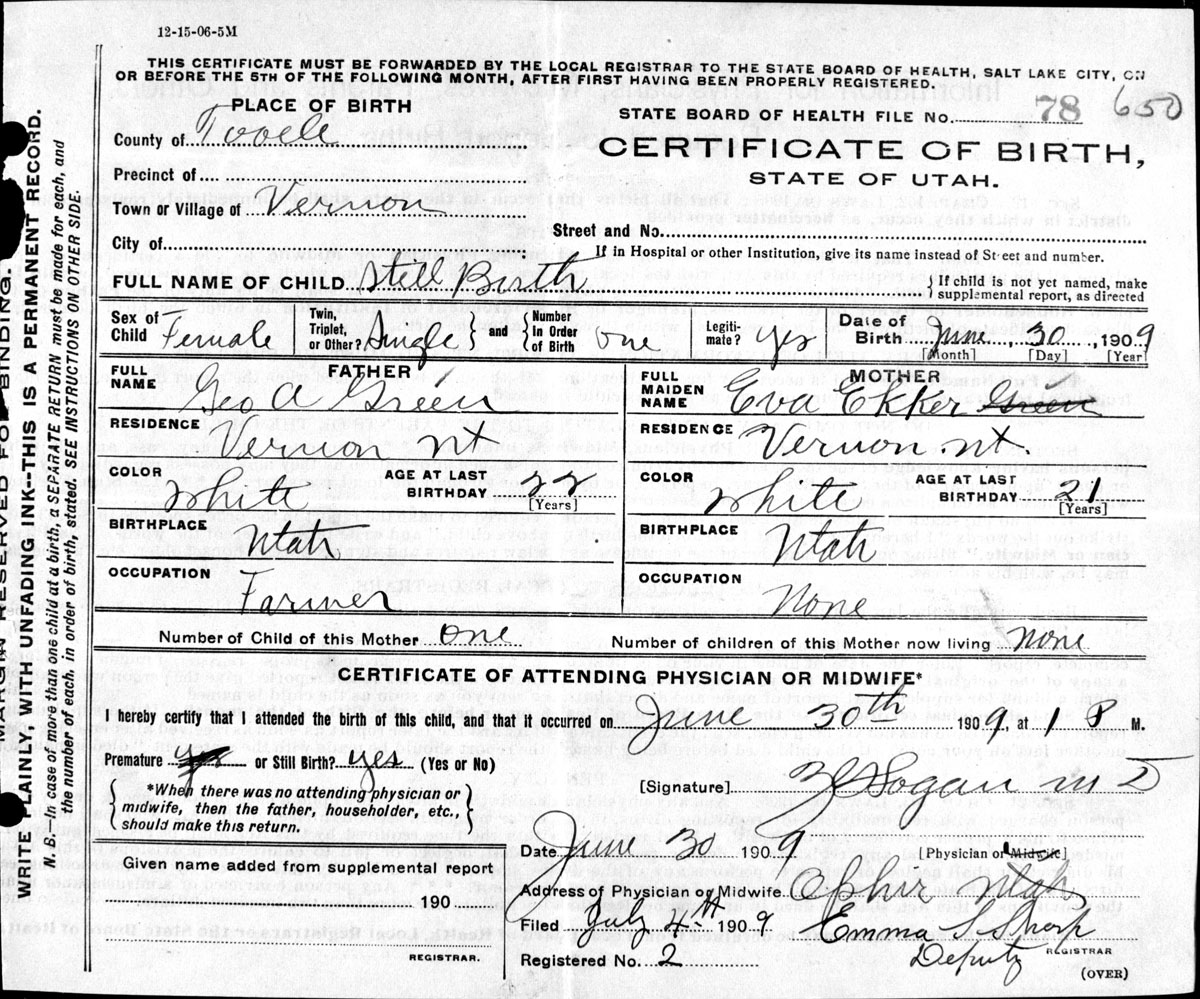 12-15-06-5M
THIS CERTIFICATE MUST BE FORWARDED BY THE LOCAL REGISTRAR TO THE STATE BOARD OF HEALTH, SALT LAKE CITY, ON
OR BEFORE THE 5TH OF THE FOLLOWING MONTH, AFTER FIRST HAVING BEEN PROPERLY REGISTERED.
PLACE OF BIRTH
County of Tooele
Precinct of
Town or Village of Vernon
City of
STATE BOARD OF HEALTH FILE No. 78 650
CERTIFICATE OF BIRTH,
STATE OF UTAH.
Street and No.
If in Hospital or other Institution, give its name instead of Street and number.
FULL NAME OF CHILD Still Birth
If child is not yet named, make
supplemental report, as directed
Sex of Child Female
Twin, Triplet, or Other? Single and Number In Order of Birth one
Legitimate? yes
Date of Birth June 30, 1909
[Month] [Day] [Year]
FATHER
FULL NAME Geo A Green
RESIDENCE Vernon Ut
COLOR White
AGE AT LAST BIRTHDAY 22
[Years]
BIRTHPLACE Utah
OCCUPATION Farmer
MOTHER
FULL MAIDEN NAME Eva Ekker Green
RESIDENCE Vernon Ut.
COLOR White
AGE AT LAST BIRTHDAY 21
[Years]
BIRTHPLACE Utah
OCCUPATION None
Number of Child of this Mother One
Number of children of this Mother now living none
CERTIFICATE OF ATTENDING PHYSICIAN OR MIDWIFE*
I hereby certify that I attended the birth of this child, and that it occurred on June 30th 1909, at 1 P M.
Premature yes or Still Birth? yes (Yes or No)
*When there was no attending physician or
midwife, then the father, householder, etc.,
should make this return.
[Signature] Logan M D
[Physician or Midwife]
Given name added from supplemental report
190
REGISTRAR.
Date June 30 1909
Address of Physician or Midwife Ophir Utah
Filed July 4th 1909
Emma J Sharp
Deputy REGISTRAR
Registered No. 2
(OVER)
BINDING.
WRITE PLAINLY, WITH UNFADING INK--THIS IS A PERMANENT RECORD.
N. B.—In case of more than one child at a birth, a SEPARATE RETURN must be made for each, and
the number of each, in order of birth, stated. SEE INSTRUCTIONS ON OTHER SIDE.